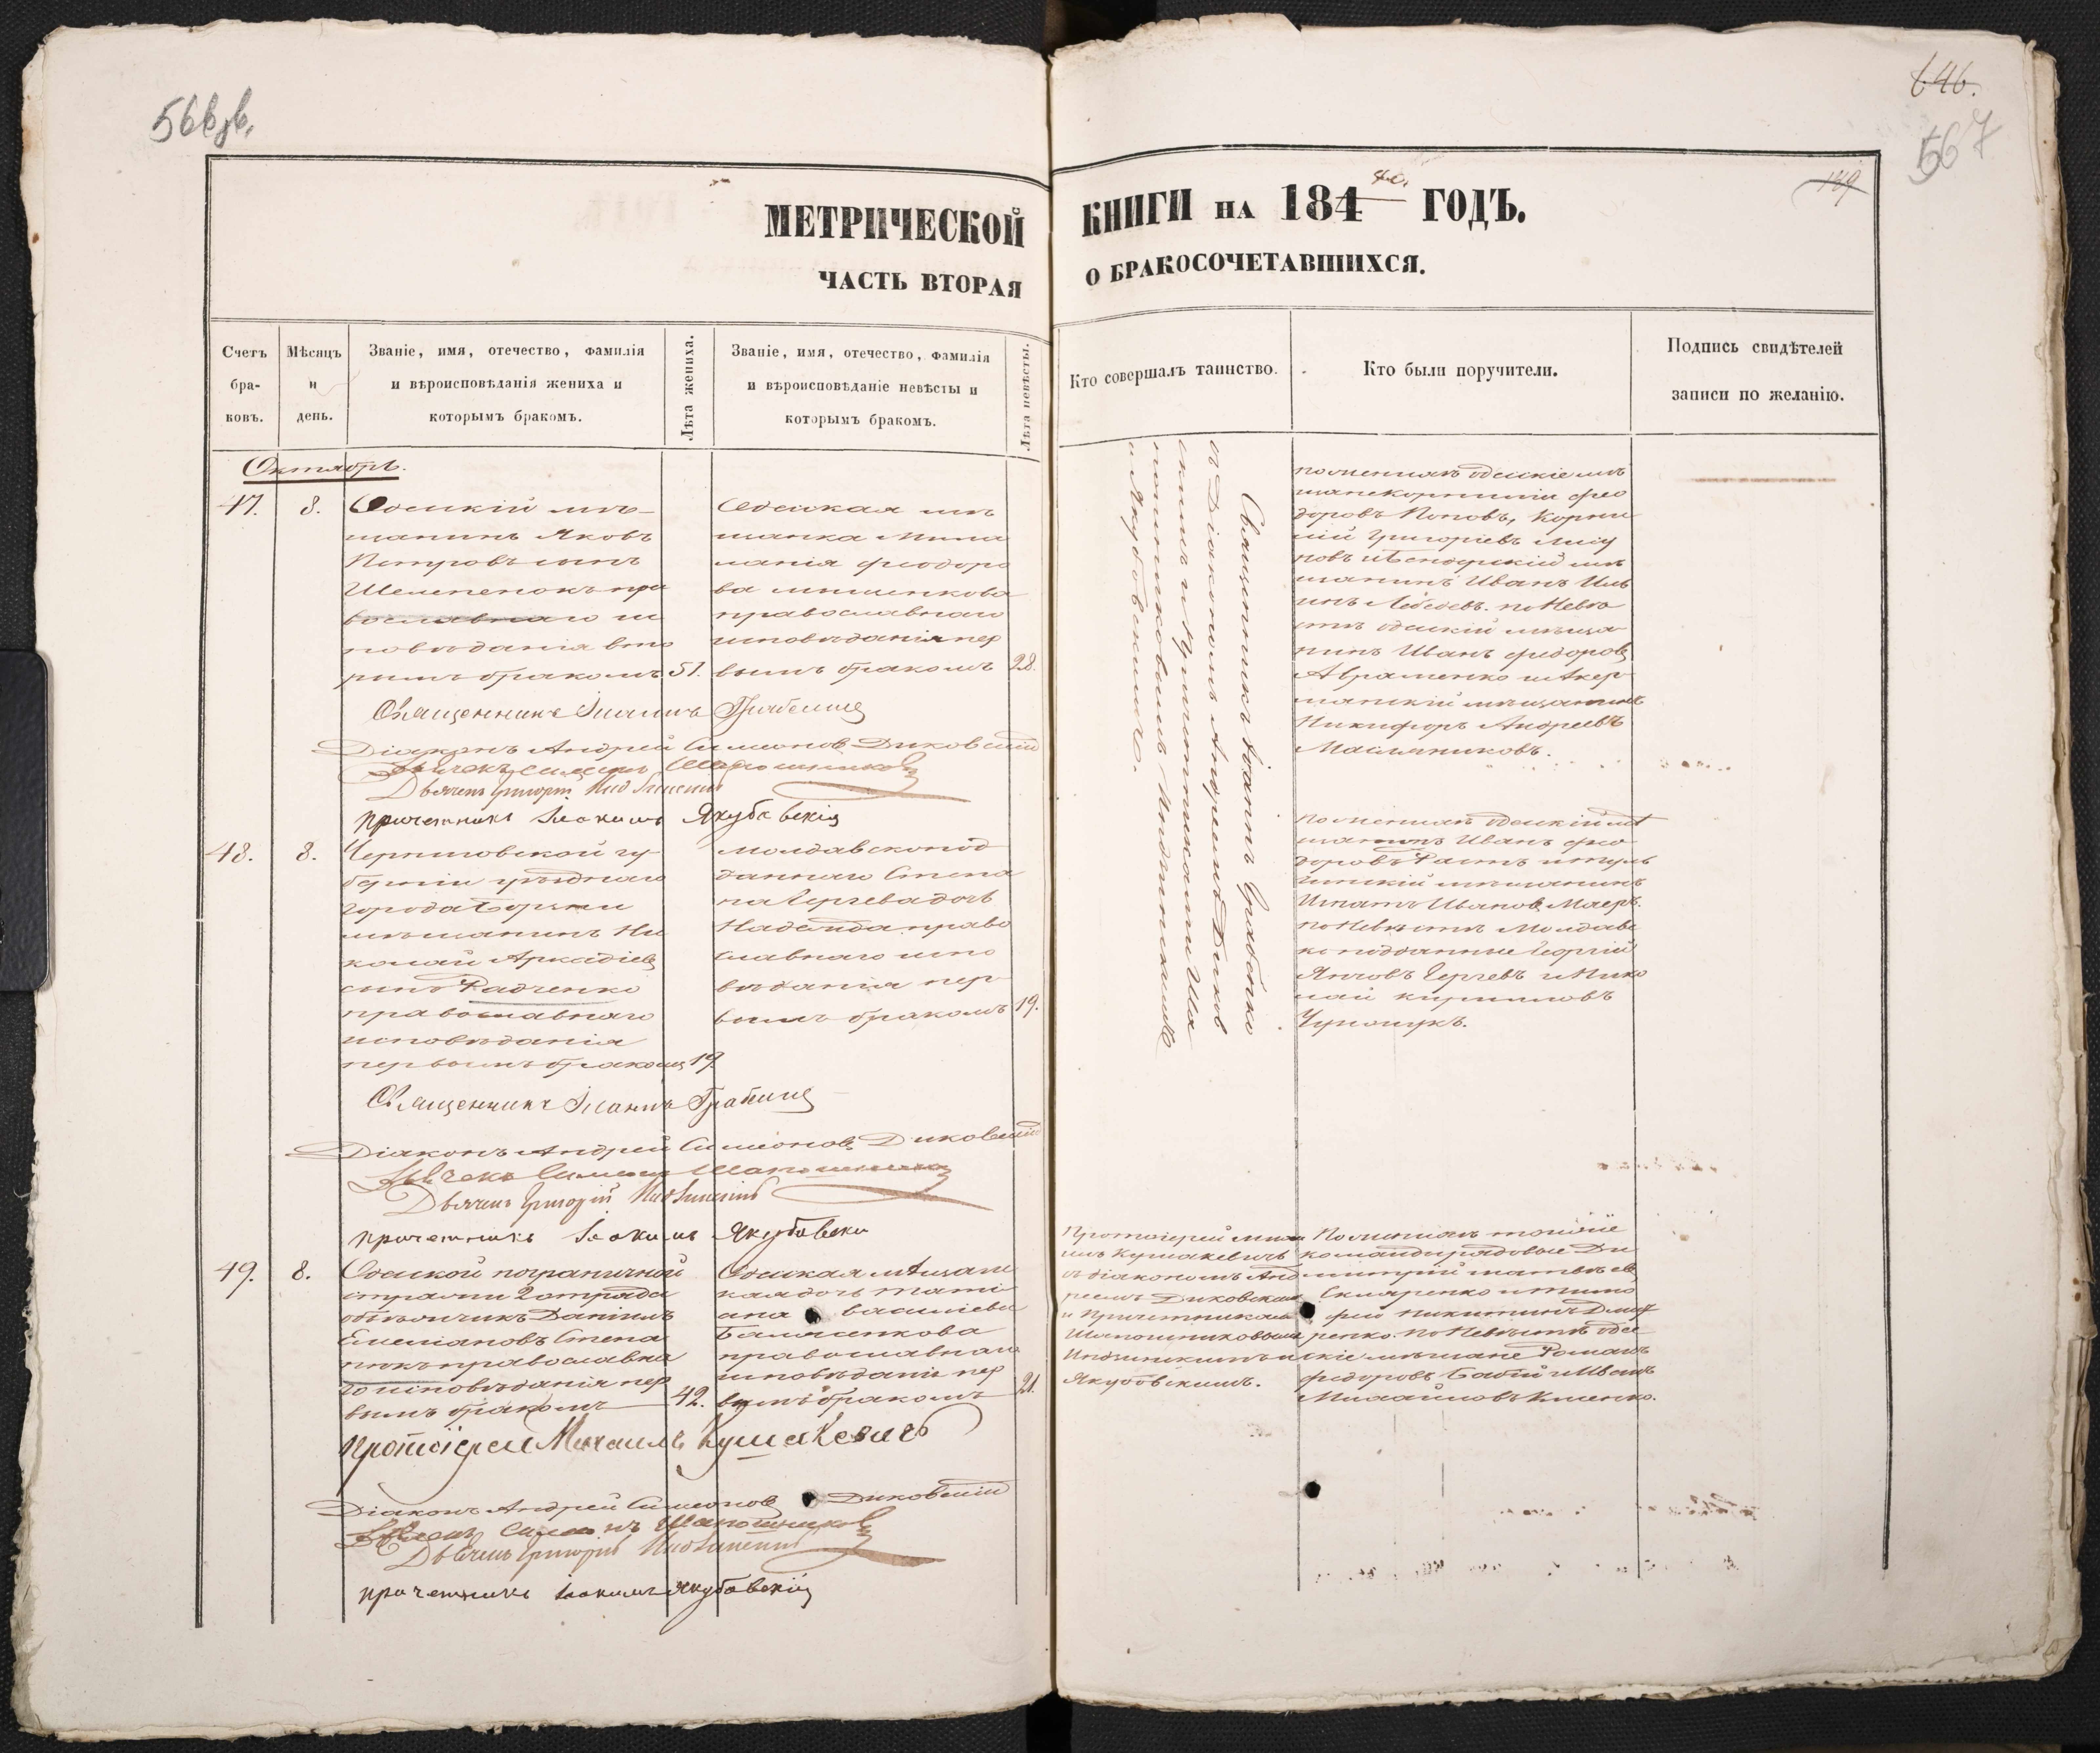 566 об.
646.
567
149
МЕТРИЧЕСКОЙ КНИГИ НА 184 40. ГОДЪ.
ЧАСТЬ ВТОРАЯ О БРАКОСОЧЕТАВШИХСЯ.
Счетъ
бра-
ковъ.
Мѣсяцъ
и
день.
Званіе, имя, отечество, фамилія
и вѣроисповѣданія жениха и
которымъ бракомъ.
Лѣта жениха.
Званіе, имя, отечество, фамилія
и вѣроисповѣданіе невѣсты и
которымъ бракомъ.
Лѣта невѣсты.
Кто совершалъ таинство.
Кто были поручители.
Подпись свидѣтелей
записи по желанію.
Октябрь.
47.
8.
Одескій мѣ-
щанинъ Яковъ
Петровъ сынъ
Шелепенокъ пра
вославнаго ис
повѣданія вто
рымъ бракомъ
51.
Одеская мѣ
щанка
ланія Феодоро
ва
православнаго
исповѣданія пер
вымъ бракомъ
28.
Священникъ Іоаннъ Грабенко
съ Діакономъ Андреемъ Диков
скимъ и Причетниками Ша
пошниковымъ
и Якубовскимъ.
по женихѣ одескіе мѣ
щане Фео
доровъ Поповъ, Корни
лій Григорьевъ
новъ и Бендерскій мѣ
щанинъ Иванъ Иль
инъ Лебедевъ. по Невѣ
стѣ одескій мѣща
нинъ Иванъ Федоровъ
Авраменко и Акер
манскій мѣщанинъ
Никифоръ Андреевъ
Масляниковъ.
Священникъ Іоаннъ Грабенко
Діаконъ Андрей Симеоновъ Диковскій
Дьячекъ Симеонъ Шапошниковъ
Дьячекъ Григорій
причетникъ Іоакимъ Якубовскій
48.
8.
Черниговской гу-
берніи уѣзднаго
города Борзны
мѣщанинъ Ни
колай Аркадіевъ
сынъ Радченко
православнаго
исповѣданія
первымъ бракомъ
19.
Молдавскопод
даннаго Степа
на Чергева дочь
Надежда право
славнаго испо
вѣданія пер
вымъ бракомъ
19.
По женихѣ одескій мѣ
щанинъ Иванъ Фео
доровъ и туль
чинскій мѣщанинъ
Игнатъ Ивановъ Маеръ.
по Невѣстѣ Молдавс
ко подданные Георгій
Янчовъ Чергевъ и Нико
лай Кириловъ
Священникъ Іоаннъ Грабенко
Діаконъ Андрей Симеоновъ Диковскій
Дьячекъ Симеонъ Шапошниковъ
Дьячекъ Григорій
причетникъ Іоакимъ Якубовски
49.
8.
Одеской пограничной
стражи 2 отряда
объѣзчикъ Даніилъ
Емеліановъ Степа
нюкъ православна
го исповѣданія пер
вымъ бракомъ
42.
Одеская мѣщанс
кая дочь Тати
ана Васильева
Балясенкова
православнаго
исповѣданія пер
вымъ бракомъ
21.
Протоіерей Миха
илъ Кушакевичъ
съ діакономъ Анд
реемъ Диковскимъ
и Причетниками
Шапошниковымъ
Якубовскимъ.
По женихѣ тойже
команды рядовые Ди
митрій Матвѣевъ
Скляренко и Тимо
фей Никитинъ
ренко. по Невѣстѣ одес
скіе мѣщане Романъ
Федоровъ Бабій и Иванъ
Михайловъ Кисенко.
Протоіерей Михаилъ Кушакевичъ
Діаконъ Андрей Симеоновъ Диковскій
Дьячекъ Симеонъ Шапошниковъ
Дьячекъ Григорій
причетникъ Іоакимъ Якубовскій